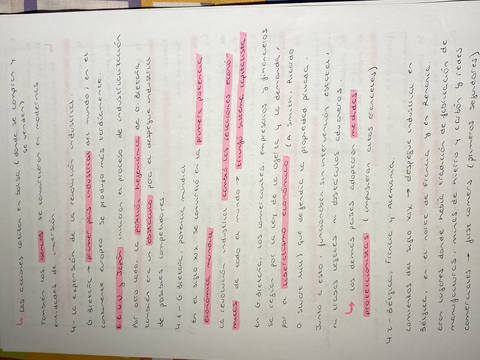 ↳ las acciones cotiza en bolsa (donde se compran y
se venden)
También los bancos se convirtieron en modernas
entidades de inversión.
4- La expansión de la revolución industrial.
G. Bretaña → primer país industrial del mundo; en el
continente europeo se produjo más tardíamente.
E.E.U.U y Japón inician el proceso de industrialización
Por otro lado, la posición hegemónica de G. Bretaña,
también era un obstáculo para el despegue industrial
de posibles competidores.
4.1- G. Bretaña, potencia mundial
en el siglo XIX se convirtió en la primera potencia
económica mundial
la revolución industrial cambió las relaciones econó-
micas de todo el mundo → triunfó sistema capitalista
en G. Bretaña, los comerciantes, empresarios y financieros
se regían por la ley de la oferta y la demanda,
por el liberalismo económico (A. Smith, Ricardo
o Stuart Mill) que defendía la propiedad privada
Junto a esto funcionaban sin intervención estatal,
ni trabas legales ni obstáculos aduaneros
↳ los demás países adoptaron medidas
proteccionistas (impusieron altos aranceles)
4.2- Bélgica, Francia y Alemania.
comienzos del siglo XIX → despegue industrial en
Bélgica, en el norte de Francia y en Renania.
eran lugares donde había tradición de fabricación de
manufacturas, minas de hierro y carbón y redes
comerciales → first comers (primeros seguidores)